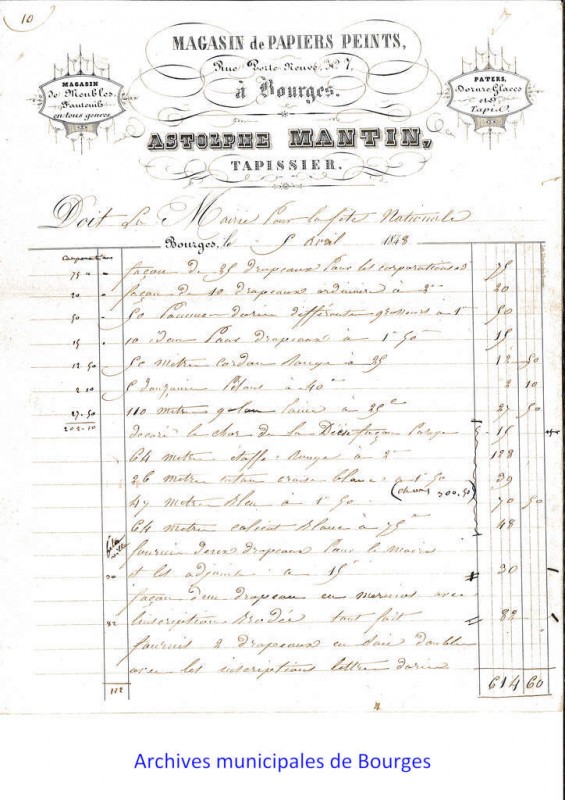 10
MAGASIN de PAPIERS PEINTS,
Rue Porte Neuve, No 7,
à Bourges.
MAGASIN
de Meubles
Fauteuils
en tous genres
PATERS,
Dorure Glaces
et
Tapis
ASTOLPHE MANTIN,
TAPISSIER.
Doit La Mairie Pour la fête Nationale
Bourges, le 5 Avril 1848
corporations
75 " façon de 25 drapeaux Pour les corporations à 75
20 " façon de 10 drapeaux ordinaire à 2 20
50 " 50 Pommes dorées différentes grosseurs à 1 50
15 " 10 idem Pour drapeaux à 1 50 15
12 50 50 metre cordon Rouge à 25 12 50
2 10 5 à 40 2 10
27-50 110 metre galon laine à 25c 27 50
202-10 décoré le char de la façon 15
64 metre étoffe Rouge à 2 128
26 metre coton croisé blanc à 1 50 39
47 metre Bleu à 1 50 (char 300.50) 70 50
64 metre calicot Blanc à 75c 48
fournir deux drapeaux Pour le maire
30 et les adjoints à 15 30
façon d'un drapeau en merinos avec
82 inscription Brodée tout fait 82
fournis 2 drapeaux en soie double
avec les inscriptions lettre dorée
112
614 60
Archives municipales de Bourges